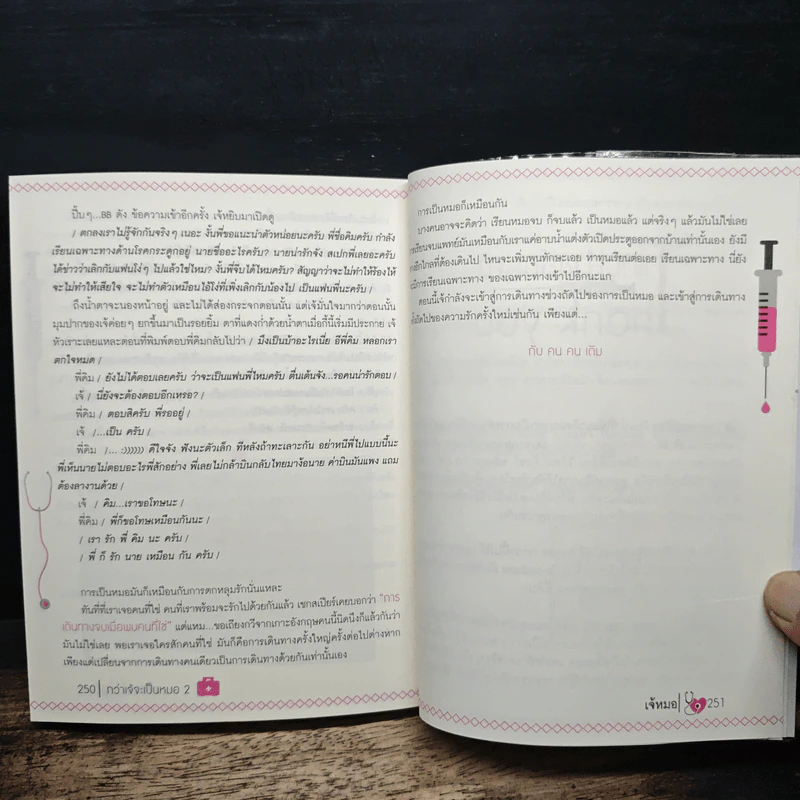 ปี๊บๆ...BB ดัง ข้อความเข้าอีกครั้ง เจ้หยิบมาเปิดดู
/ ตกลงเราไม่รู้จักกันจริงๆ เนอะ งั้นพี่ขอแนะนำตัวหน่อยนะครับ พี่ชื่อคิมครับ กำลัง
เรียนเฉพาะทางด้านโรคกระดูกอยู่ นายชื่ออะไรครับ? นายน่ารักจัง สเปกพี่เลยอะครับ
ได้ข่าวว่าเลิกกับแฟนโง่ๆ ไปแล้วใช่ไหม? งั้นพี่จีบได้ไหมครับ? สัญญาว่าจะไม่ทำให้ร้องไห้
จะไม่ทำให้เสียใจ จะไม่ทำตัวเหมือนไอ้โง่ที่เพิ่งเลิกกับน้องไป เป็นแฟนพี่นะครับ /
ถึงน้ำตาจะนองหน้าอยู่ และไม่ได้ส่องกระจกตอนนั้น แต่เจ้มั่นใจมากว่าตอนนั้น
มุมปากของเจ้ค่อยๆ ยกขึ้นมาเป็นรอยยิ้ม ตาที่แดงก่ำด้วยน้ำตาเมื่อกี้นี้เริ่มมีประกาย เจ้
หัวเราะเลยแหละตอนที่พิมพ์ตอบพี่คิมกลับไปว่า / มึงเป็นบ้าอะไรเนี่ย อีพี่คิม หลอกเรา
ตกใจหมด /
พี่คิม / ยังไม่ได้ตอบเลยครับ ว่าจะเป็นแฟนพี่ไหมครับ ตื่นเต้นจัง...รอคนน่ารักตอบ /
เจ้ / นี่ยังจะต้องตอบอีกเหรอ? /
พี่คิม / ตอบสิครับ พี่รออยู่ /
เจ้ /...เป็น ครับ /
พี่คิม /... :)))))) ดีใจจัง ฟังนะตัวเล็ก ทีหลังถ้าทะเลาะกัน อย่าหนีพี่ไปแบบนี้นะ
พี่เห็นนายไม่ตอบอะไรพี่สักอย่าง พี่เลยไม่กล้าบินกลับไทยมาง้อนาย ค่าบินมันแพง แถม
ต้องลางานด้วย /
เจ้ / คิม...เราขอโทษนะ /
พี่คิม / พี่ก็ขอโทษเหมือนกันนะ /
/ เรา รัก พี่ คิม นะ ครับ /
/ พี่ ก็ รัก นาย เหมือน กัน ครับ /
การเป็นหมอมันก็เหมือนกับการตกหลุมรักนั่นแหละ
ทันทีที่เราเจอคนที่ใช่ คนที่เราพร้อมจะรักไปด้วยกันแล้ว เชกสเปียร์เคยบอกว่า "การ
เดินทางจบเมื่อพบคนที่ใช่" แต่แหม...ขอเถียงกวีจากเกาะอังกฤษคนนี้นิดนึงก็แล้วกันว่า
มันไม่ใช่เลย พอเราเจอใครสักคนที่ใช่ มันก็คือการเดินทางครั้งใหญ่ครั้งต่อไปต่างหาก
เพียงแต่เปลี่ยนจากการเดินทางคนเดียวเป็นการเดินทางด้วยกันเท่านั้นเอง
250 | กว่าเจ้จะเป็นหมอ 2
การเป็นหมอก็เหมือนกัน
บางคนอาจจะคิดว่า เรียนหมอจบ ก็จบแล้ว เป็นหมอแล้ว แต่จริงๆ แล้วมันไม่ใช่เลย
การเรียนจบแพทย์มันเหมือนกับเราแค่อาบน้ำแต่งตัวเปิดประตูออกจากบ้านเท่านั้นเอง ยังมี
อีกไกลที่ต้องเดินไป ไหนจะเพิ่มพูนทักษะเอย หาทุนเรียนต่อเอย เรียนเฉพาะทาง นี่ยัง
มีการเรียนเฉพาะทาง ของเฉพาะทางเข้าไปอีกนะแก
ตอนนี้เจ้กำลังจะเข้าสู่การเดินทางช่วงถัดไปของการเป็นหมอ และเข้าสู่การเดินทาง
ถัดไปของความรักครั้งใหม่เช่นกัน เพียงแต่...
กับ คน คน เดิม
เจ้หมอ | 251